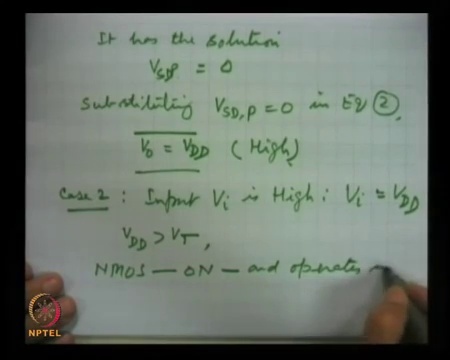 It has the solution
V_SDP = 0
Substituting V_SD,P = 0 in Eq ②,
V_0 = V_DD (High)
Case 2 : Input V_i is High : V_i = V_DD
V_DD > V_T,
NMOS — ON — and operates
NPTEL